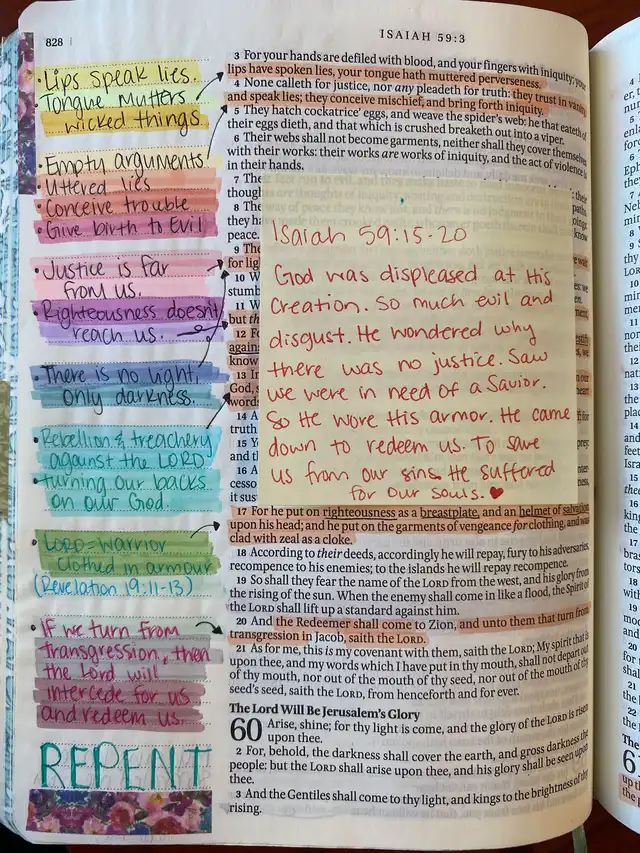 828
ISAIAH 59:3
• Lips speak lies.
• Tongue mutters
wicked things.
• Empty arguments
• Uttered lies
• Conceive trouble
• Give birth to Evil
• Justice is far
from us.
• Righteousness doesn't
reach us.
• There is no light,
only darkness.
• Rebellion & treachery
against the LORD
• turning our backs
on our God.
• LORD = Warrior
clothed in armour
(Revelation 19:11-13)
• If we turn from
transgression, then
the Lord will
intercede for us
and redeem us
REPENT
3 For your hands are defiled with blood, and your fingers with iniquity; your
lips have spoken lies, your tongue hath muttered perverseness.
4 None calleth for justice, nor any pleadeth for truth: they trust in vanity,
and speak lies; they conceive mischief, and bring forth iniquity.
5 They hatch cockatrice' eggs, and weave the spider's web: he that eateth of
their eggs dieth, and that which is crushed breaketh out into a viper.
6 Their webs shall not become garments, neither shall they cover themselves
with their works: their works are works of iniquity, and the act of violence is
in their hands.
7 The
though
8 The
they ha
peace.
9 The
for lig
10 W
stumb
11 W
but th
12 Fo
again
know
13 In
God, s
words
14 A
truth
15 Ye
and th
16 A
cesso
it sus
Isaiah 59:15-20
God was displeased at His
Creation. So much evil and
disgust. He wondered why
there was no justice. Saw
we were in need of a Savior.
So He wore His armor. He came
down to redeem us. To save
us from our sins. He suffered
for our souls. ♥
17 For he put on righteousness as a breastplate, and an helmet of salvation
upon his head; and he put on the garments of vengeance for clothing, and was
clad with zeal as a cloke.
18 According to their deeds, accordingly he will repay, fury to his adversaries,
recompence to his enemies; to the islands he will repay recompence.
19 So shall they fear the name of the LORD from the west, and his glory from
the rising of the sun. When the enemy shall come in like a flood, the Spirit of
the LORD shall lift up a standard against him.
20 And the Redeemer shall come to Zion, and unto them that turn from
transgression in Jacob, saith the LORD.
21 As for me, this is my covenant with them, saith the LORD; My spirit that is
upon thee, and my words which I have put in thy mouth, shall not depart out
of thy mouth, nor out of the mouth of thy seed, nor out of the mouth of thy
seed's seed, saith the LORD, from henceforth and for ever.
The Lord Will Be Jerusalem's Glory
60 Arise, shine; for thy light is come, and the glory of the LORD is risen
upon thee.
2 For, behold, the darkness shall cover the earth, and gross darkness the
people: but the LORD shall arise upon thee, and his glory shall be seen upon
thee.
3 And the Gentiles shall come to thy light, and kings to the brightness of thy
rising.